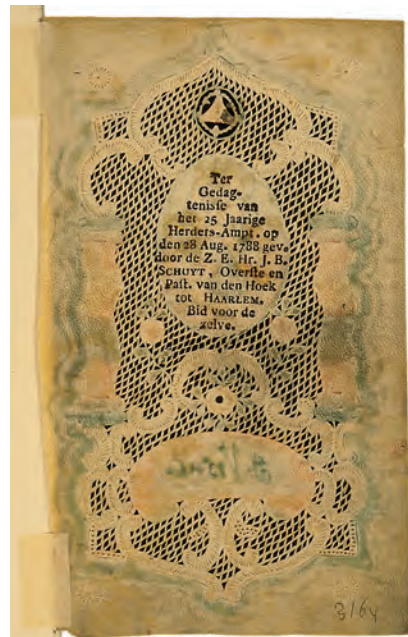 Ter
Gedag-
tenisse van
het 25 Jaarige
Herders-Ampt, op
den 28 Aug. 1788 gev.
door de Z. E. Hr. J. B.
SCHUYT, Overste en
Past. van den Hoek
tot HAARLEM.
Bid voor de
zelve.
3164